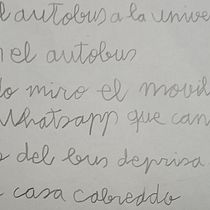 el autobus a la unive
n el autobus
do miro el movil
Whatsapp que can
o del bus deprisa
a casa cabreddo